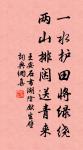 一水护田将绿绕
两山排闼送青来
王安石书湖阴先生壁
词典网集